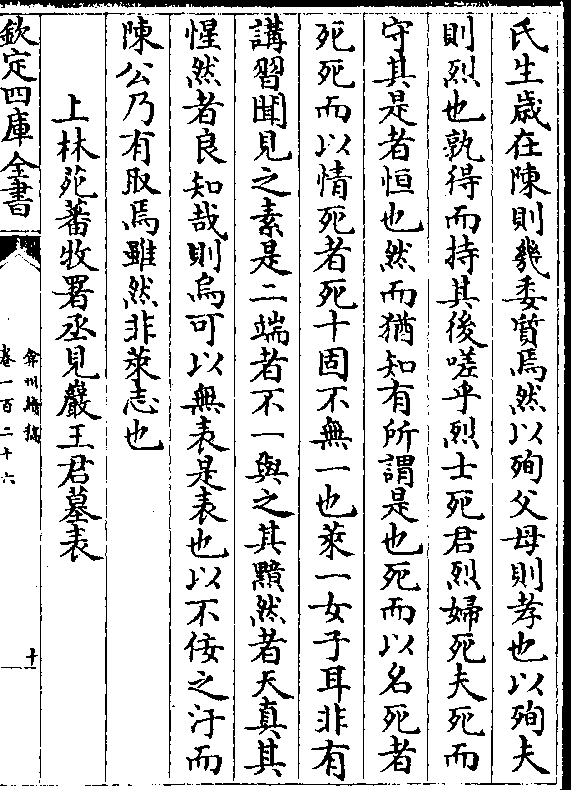 氏生歲在陳則幾委質焉然以殉父母則孝也以殉夫
則烈也孰得而持其後嗟乎烈士死君烈婦死夫死而
守其是者恒也然而猶知有所謂是也死而以名死者
死死而以情死者死十固不無一也萊一女子耳非有
講習聞見之素是二端者不一與之其黯然者天真其
惺然者良知哉則烏可以無表是表也以不佞之汙而
陳公乃有取焉雖然非萊志也
上林苑蕃牧署丞見巖王君墓表
欽定四庫全書
弇州續稿
卷一百二十六
十